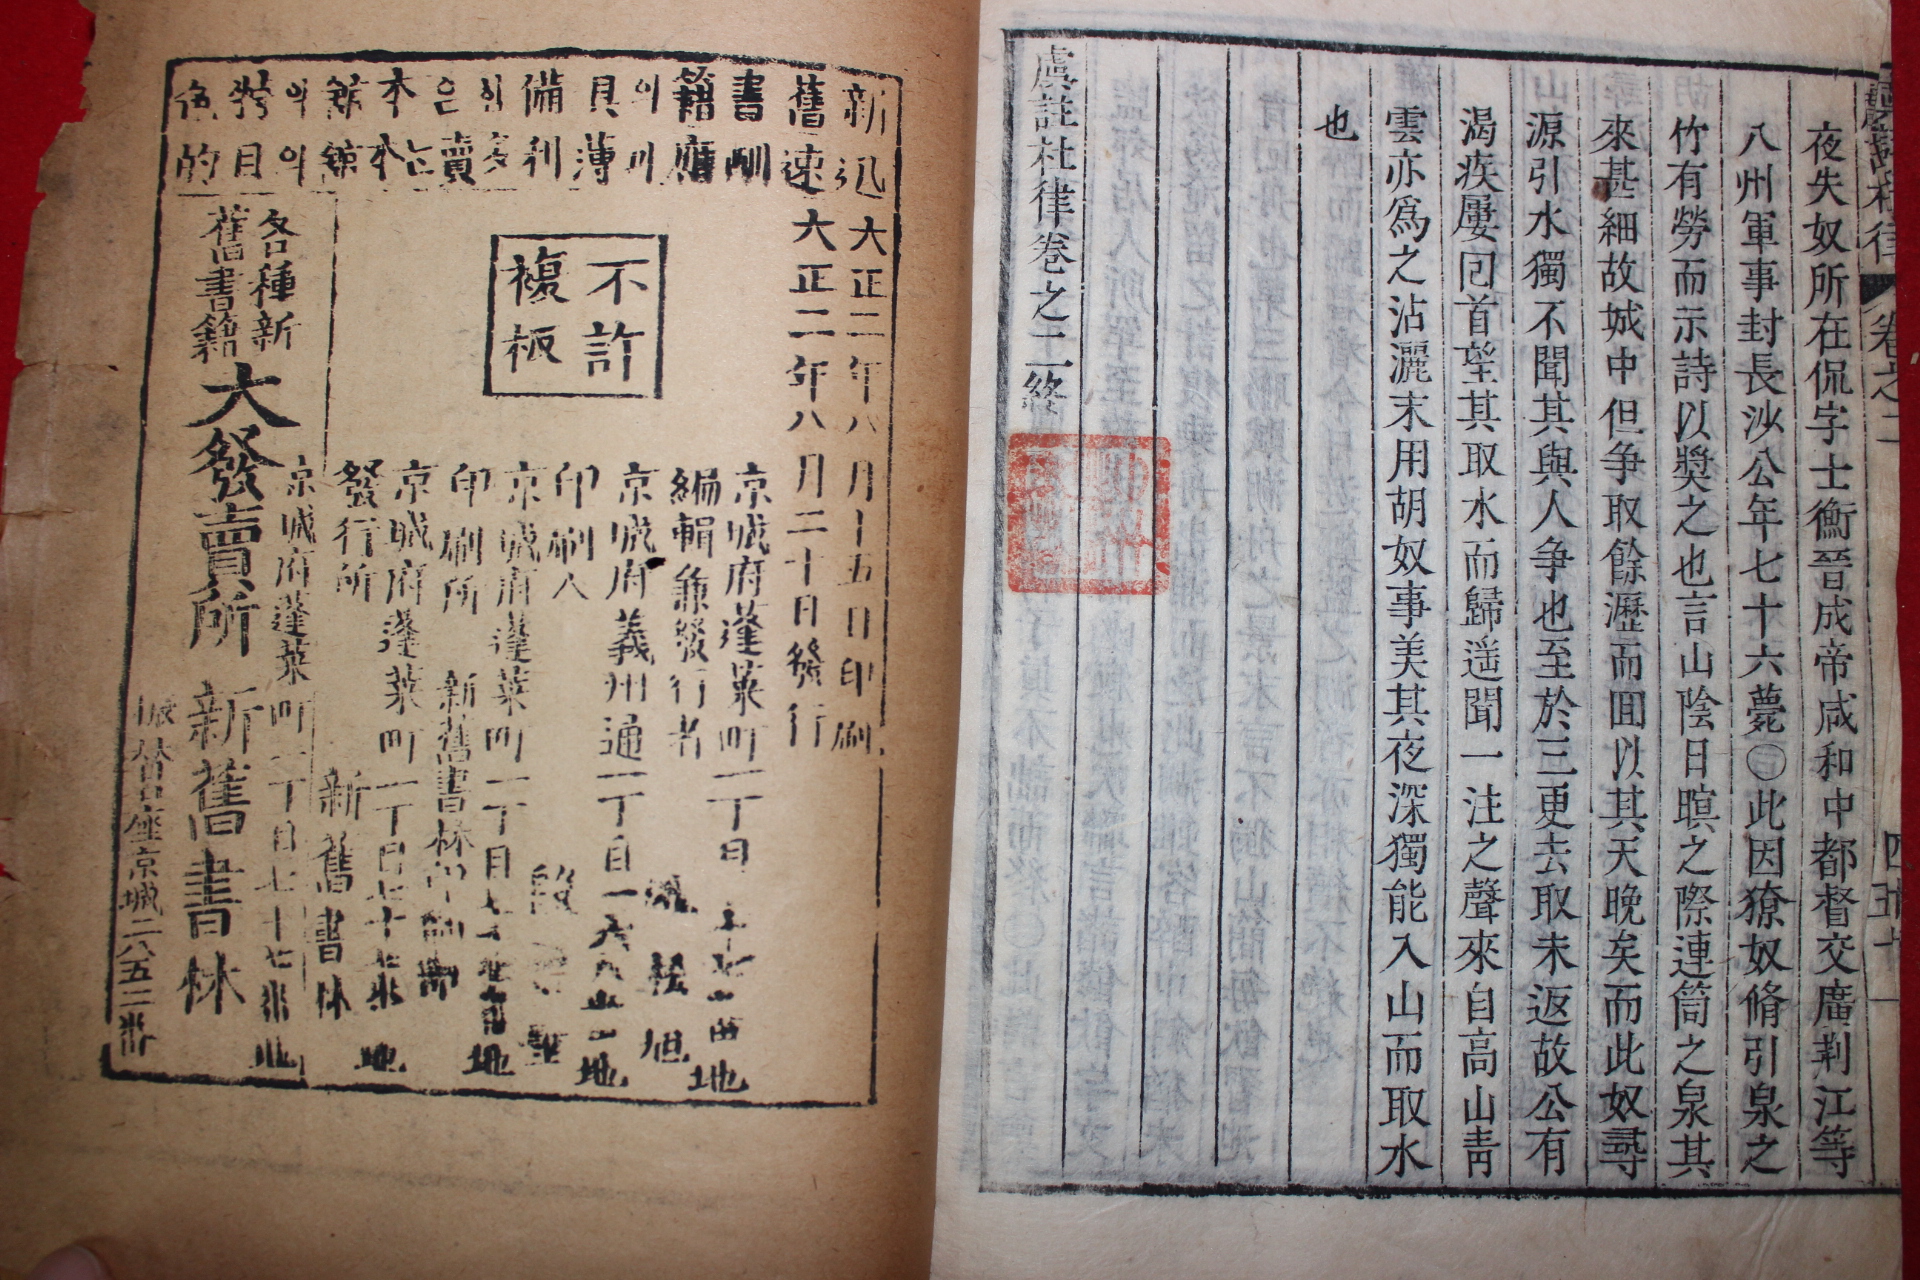 虞註杜律
卷之二
夜失奴所在侃字士衡晉成帝咸和中都督交廣荆江等
八州軍事封長沙公年七十六薨〇此因獠奴脩引泉之
竹有勞而示詩以奬之也言山陰日暝之際連筒之泉其
來甚細故城中但争取餘瀝而囬以其天晚矣而此奴尋
源引水獨不聞其與人争也至於三更去取未返故公有
渴疾屢囘首望其取水而歸遥聞一注之聲來自高山靑
雲亦爲之沾灑末用胡奴事美其夜深獨能入山而取水
也
虞註杜律卷之二終
大正二年八月十五日印刷
大正二年八月二十日發行
京城府蓬萊町一丁目七十七番地
編輯兼發行者 松旭
京城府義州通一丁目一六八
印刷人
京城府蓬萊町一丁目七十七番地
印刷所 新舊書林印刷部
京城府蓬萊町一丁目七十七番地
發行所 新舊書林
京城府蓬萊町一丁目七十七番地
各種新
舊書籍
大發賣所 新舊書林
振替口座京城二八五二番
不許
複板
新舊書籍의具備
은本舘의特色
迅速 廉 薄利
多賣는本舘의目的